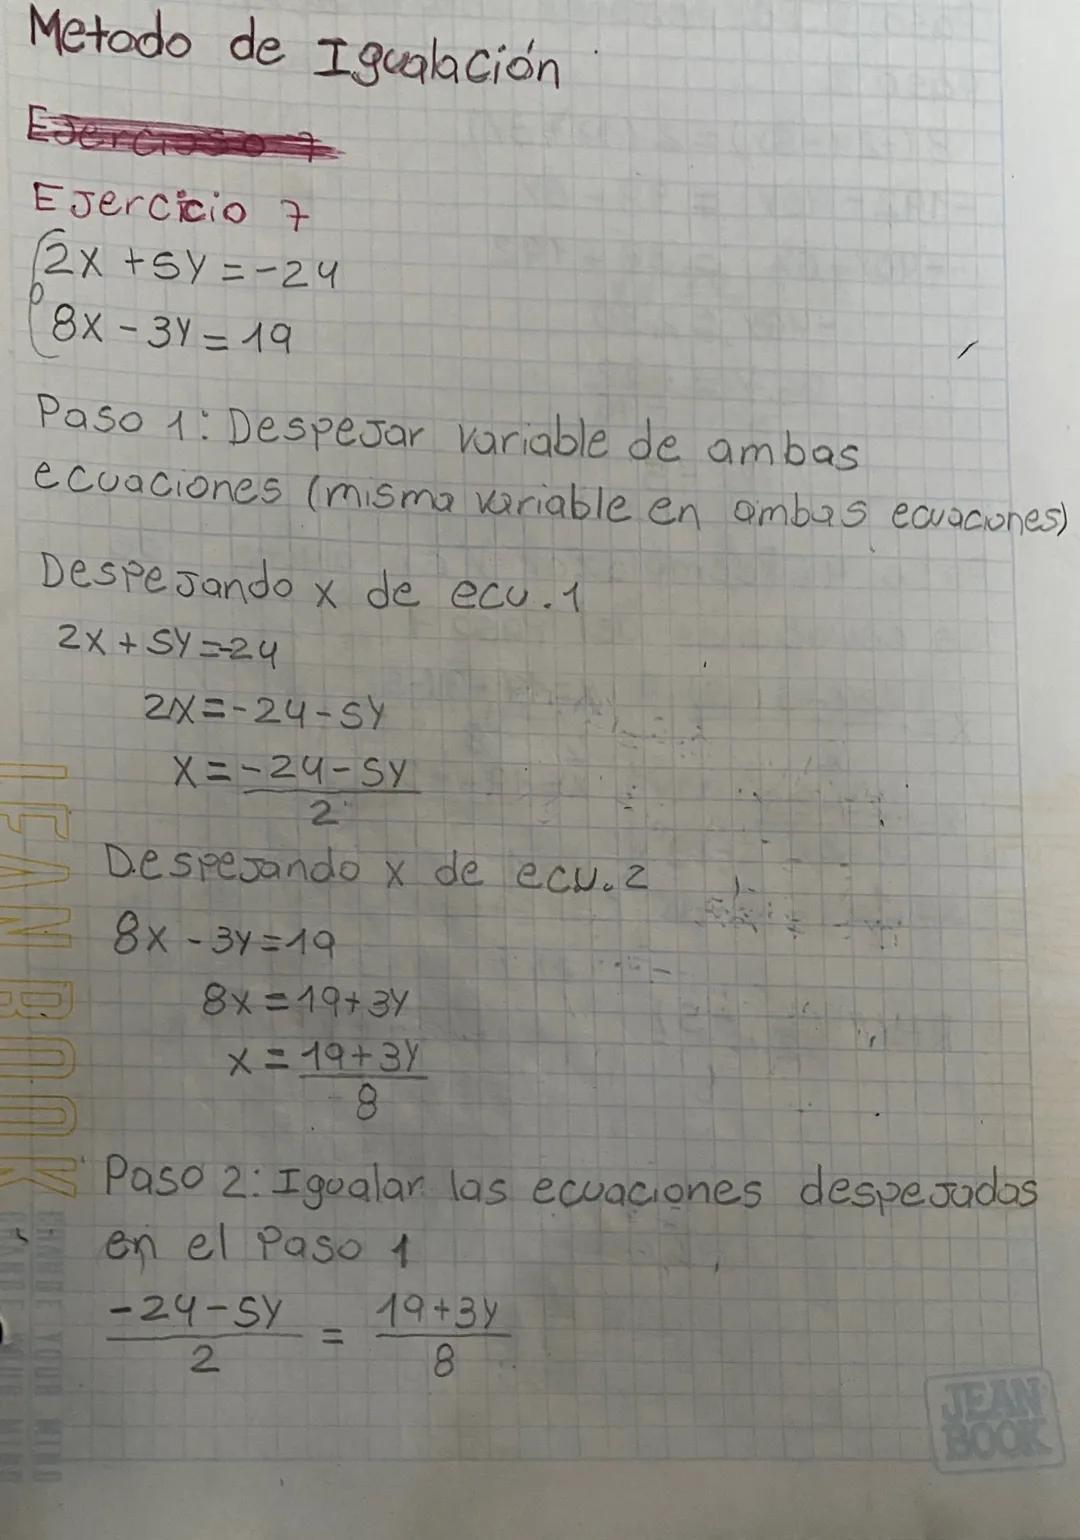 Metodo de Igualación
Ejercicio 7
2x + 5y = -24
8x - 3y = 19
Paso 1: Despejar variable de ambas
ecuaciones (misma variable en ambas ecuaciones)
Despejando x de ecu. 1
2x + 5y = -24
2x = -24 - 5y
x = -24 - 5y
2
Despejando x de ecu. 2
8x - 3y = 19
8x = 19 + 3y
x = 19 + 3y
8
Paso 2: Igualar las ecuaciones despejadas
en el Paso 1
-24 - 5y = 19 + 3y
2 8
JEAN BOOK
JEAN
BOOK